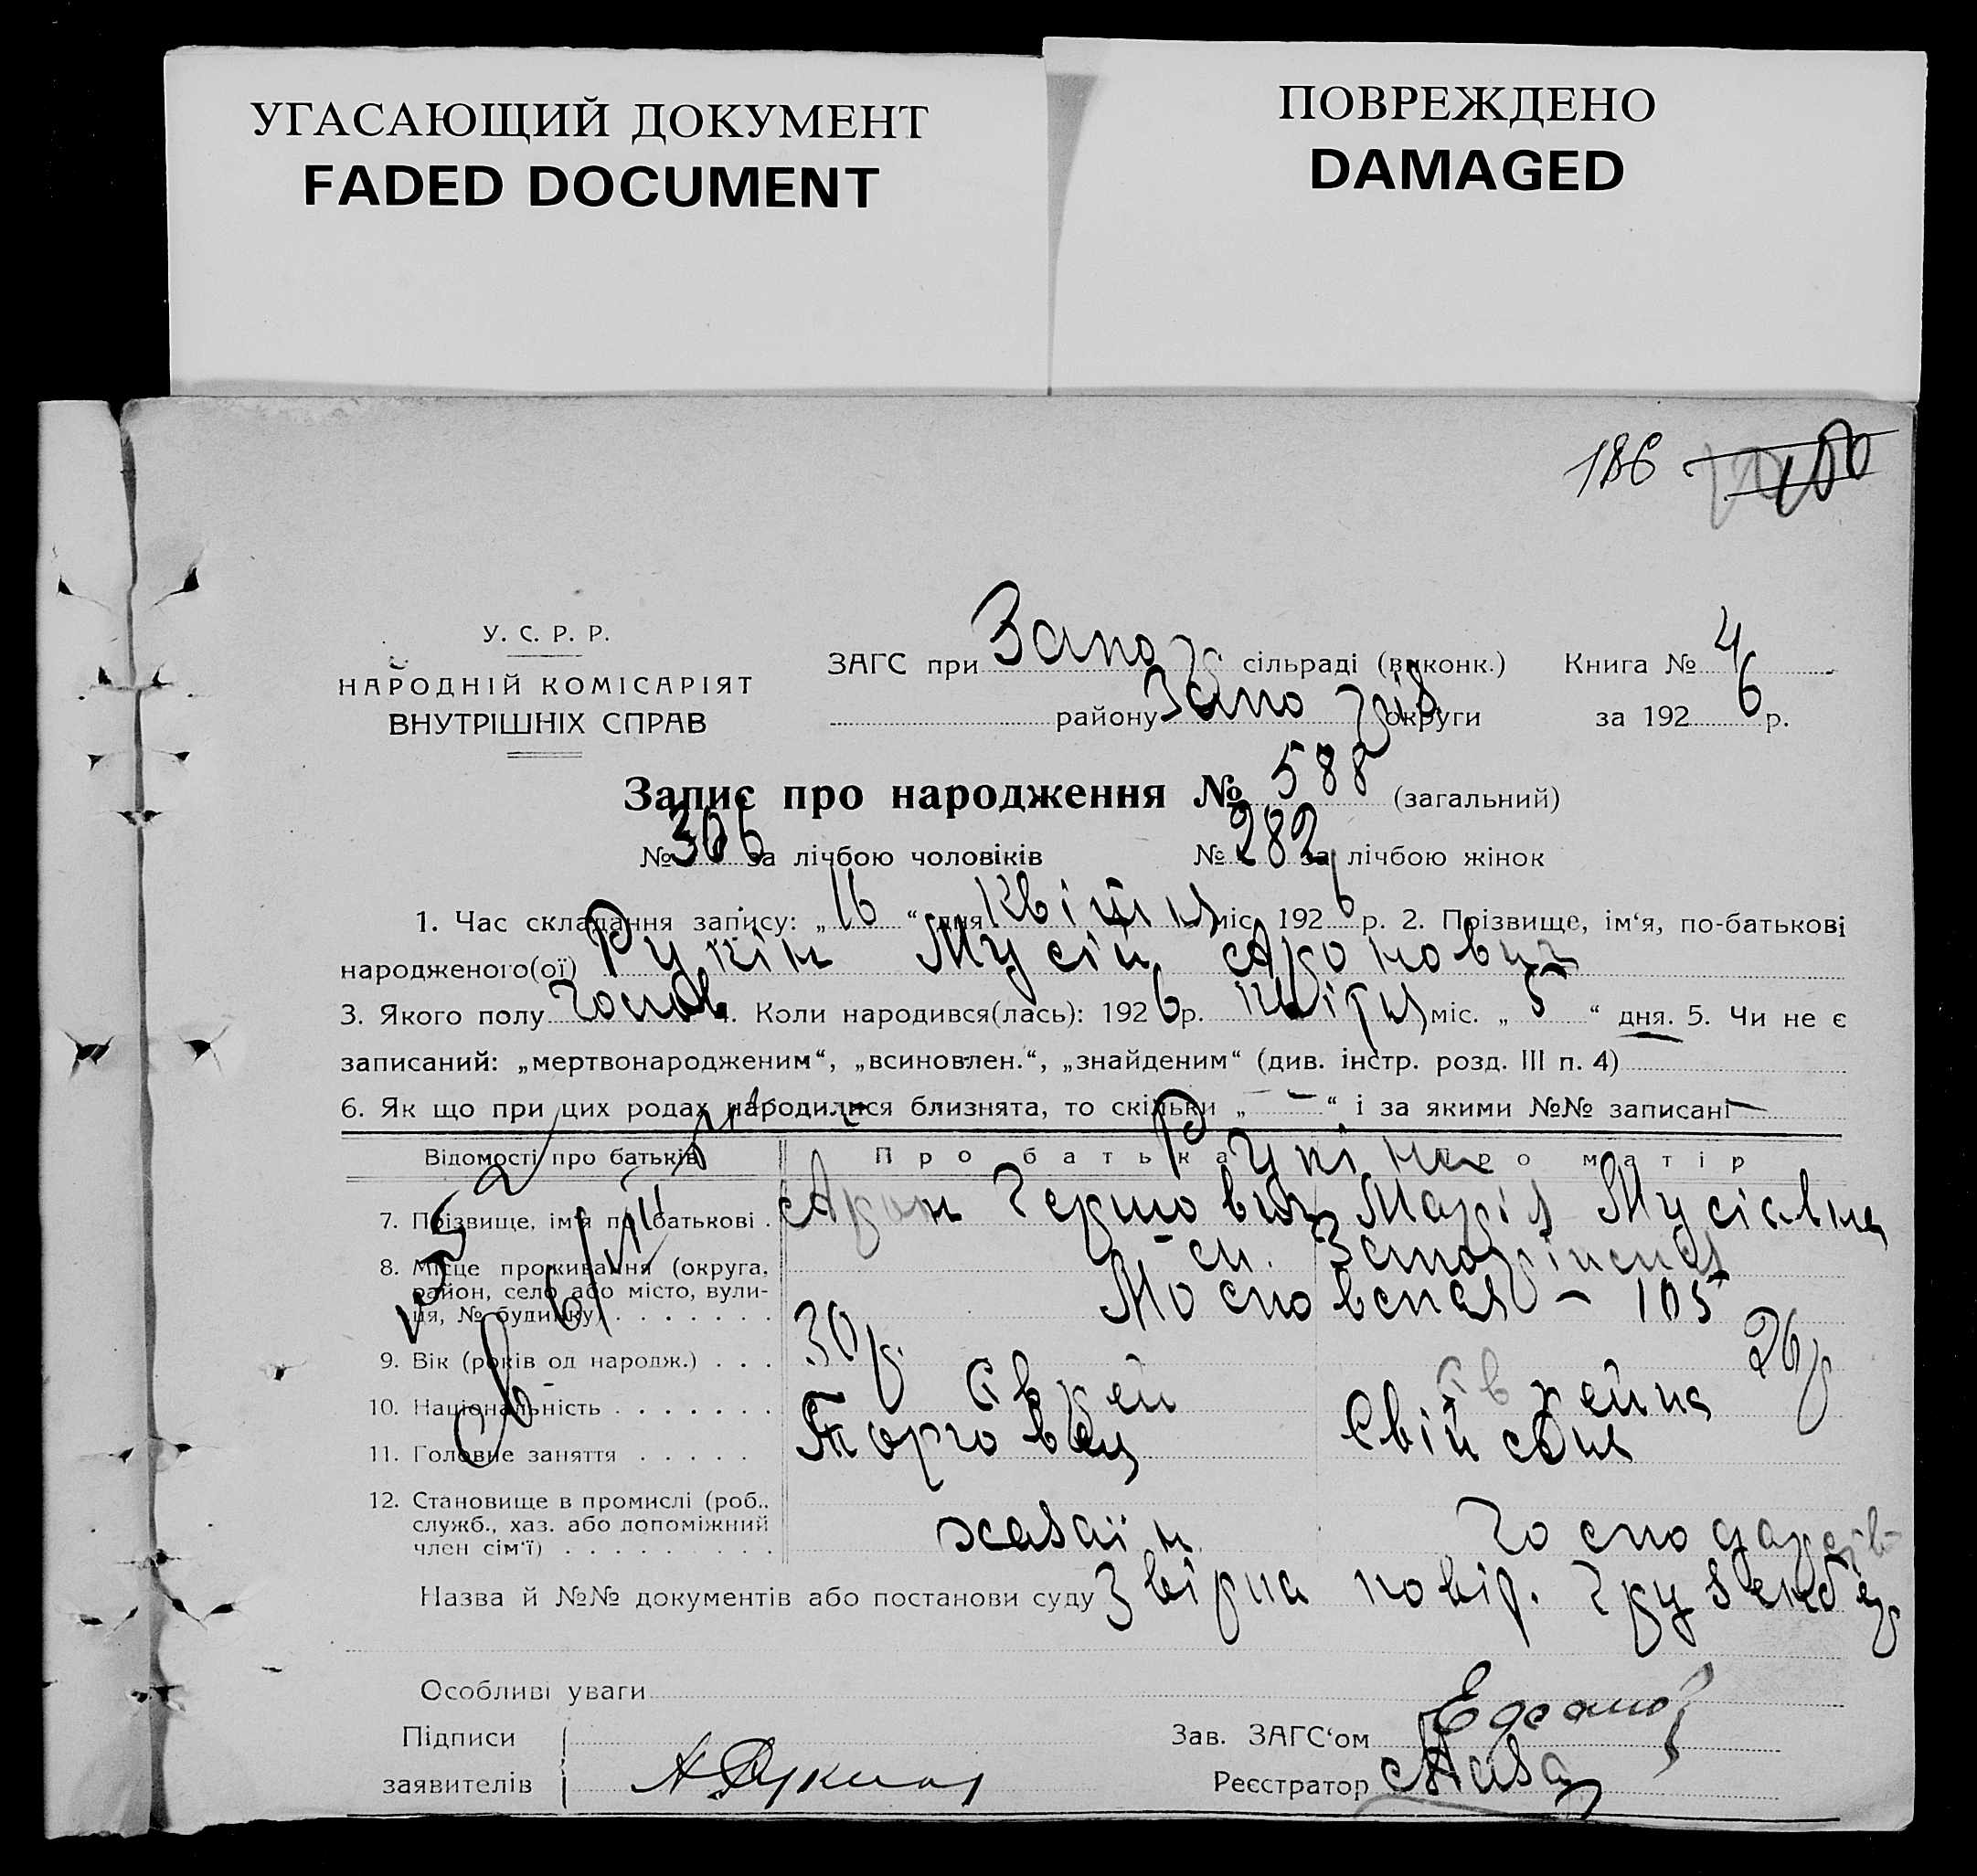 УГАСАЮЩИЙ ДОКУМЕНТ
FADED DOCUMENT
ПОВРЕЖДЕНО
DAMAGED
186 150
У. С. Р. Р.
НАРОДНІЙ КОМІСАРІЯТ
ВНУТРІШНІХ СПРАВ
ЗАГС при Запоз сільраді (виконк.) Книга № 4
району Запорів округи за 192 6 р.
Запис про народження № 588 (загальний)
№ 306 за лічбою чоловіків № 282 за лічбою жінок
1. Час складання запису: „ 16 “ дня Квітня міс. 192 6 р. 2. Прізвище, ім‘я, по-батькові
народженого(ої) Рукін Мусій Аронович
3. Якого полу Чолов 4. Коли народився(лась): 192 6 р. Квітня міс. „ 5 “ дня. 5. Чи не є
записаний: „мертвонародженим“, „всиновлен.“, „знайденим“ (див. інстр. розд. III п. 4)
6. Як що при цих родах народилися близнята, то скільки „ — “ і за якими №№ записані —
Відомості про батьків Про батька Про матір
Рукіна
7. Прізвище, ім‘я по батькові . Арон Гершович Марія Мусієвна
8. Місце проживання (округа,
район, село або місто, вули-
ця, № будинку) . . . . . . .
Московская – 105
9. Вік (років од народж.) . . . 30 р. 26 р
10. Національність . . . . . . . Єврей Єврейка
11. Головне заняття . . . . . Торговец
12. Становище в промислі (роб.,
служб., хаз. або допоміжний
член сім‘ї) . . . . . . . . .
хазаїн
Назва й №№ документів або постанови суду Звірка повір.
Особливі уваги
Підписи
заявителів А Рукин
Зав. ЗАГС‘ом
Реєстратор